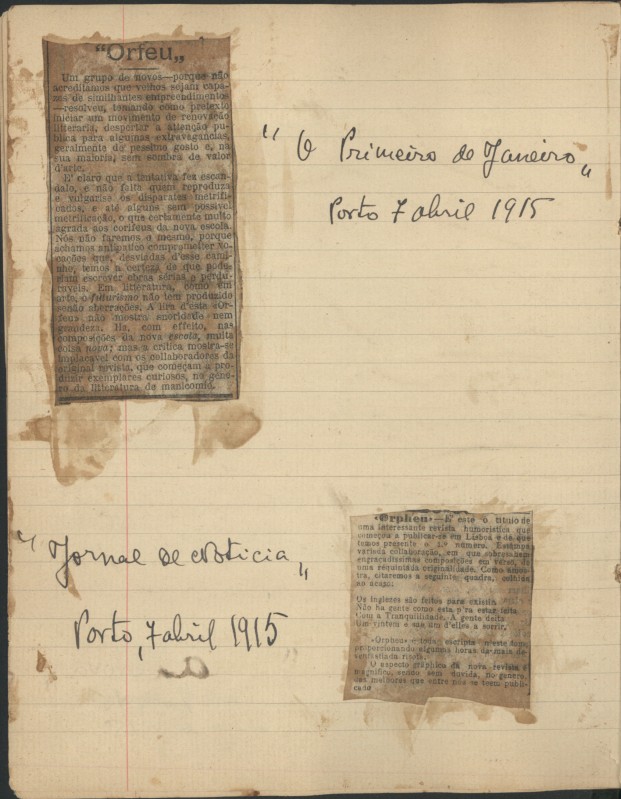 “Orfeu„
Um grupo de novos—porque não
acreditamos que velhos sejam capa-
zes de similhantes emprendimentos
—resolveu, tomando como pretexto
iniciar um movimento de renovação
litteraria, despertar a attenção pu-
blica para algumas extravagancias,
geralmente de pessimo gosto e, na
sua maioria, sem sombra de valor
d'arte.
E' claro que a tentativa fez escan-
dalo, e não falta quem reproduza
e vulgarise os disparates metrifi-
cados, e até alguns sem possivel
metrificação, o que certamente muito
agrada aos corifeus da nova escola.
Nós não faremos o mesmo, porque
achamos antipatico comprometter vo-
cações que, desviadas d'esse cami-
nho, temos a certeza de que pode-
riam escrever obras sérias e perdu-
raveis. Em litteratura, como em
arte, o futurismo não tem produzido
senão aberrações. A lira d'este «Or-
feu» não mostra sonoridade nem
grandeza. Ha, com effeito, nas
composições da nova escola, muita
coisa nova; mas a critica mostra-se
implacavel com os collaboradores da
original revista, que começam a pro-
duzir exemplares curiosos, no gene-
ro da litteratura de manicomio.
“ O Primeiro de Janeiro „
Porto 7 abril 1915
“ Jornal de Noticia „
Porto, 7 abril 1915
«Orpheu»—E' este o titulo de
uma interessante revista humoristica que
começou a publicar-se em Lisboa e de que
temos presente o 1.º numero. Estampa
variada collaboração, em que sobresahem
engraçadissimas composições em verso, de
uma requintada originalidade. Como amos-
tra, citaremos a seguinte quadra, colhida
ao acaso:
Os inglezes são feitos para existir.
Não ha gente como esta p'ra estar feita
Com a Tranquillidade. A gente deita
Um vintem e sae um d'elles a sorrir.
«Orpheu» é toda escripta n'este tom,
proporcionando algumas horas da mais de-
senfastiada risota.
O aspecto graphico da nova revista é
magnifico, sendo sem duvida, no genero,
das melhores que entre nós se teem publi-
cado